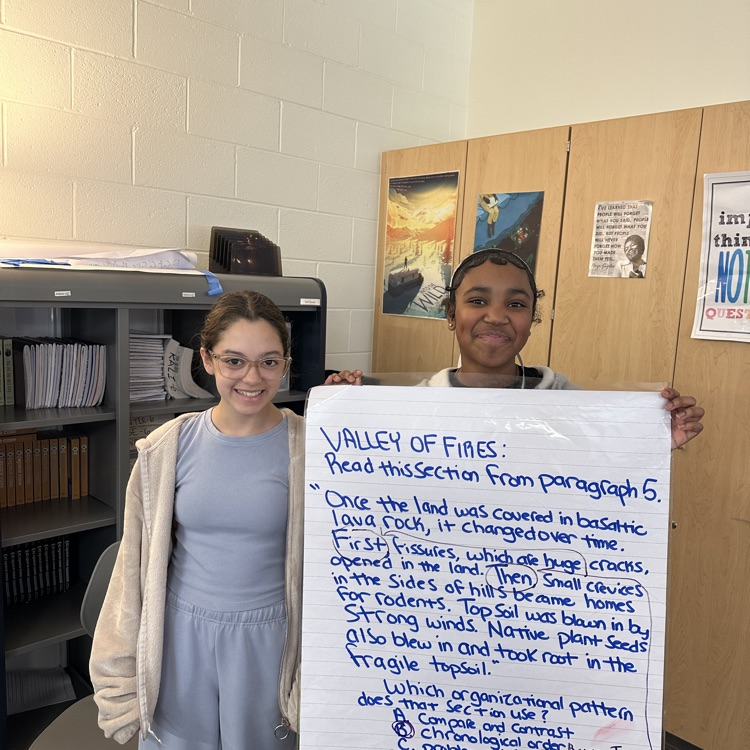 I'VE LEARNED THAT
PEOPLE WILL FORGET
WHAT YOU SAID, PEOPLE
WILL FORGET WHAT YOU
DID, BUT PEOPLE
WILL NEVER
FORGET HOW
YOU MADE
THEM FEEL.
NOT
QUEST
VALLEY OF FIRES:
Read this section from paragraph 5.
"Once the land was covered in basaltic
lava rock, it changed over time.
First fissures, which are huge cracks,
opened in the land. Then small crevices
in the sides of hills became homes
for rodents. Topsoil was blown in by
strong winds. Native plant seeds
also blew in and took root in the
fragile topsoil."
Which organizational pattern
does that section use?
A. Compare and contrast
B. chronological order
C.